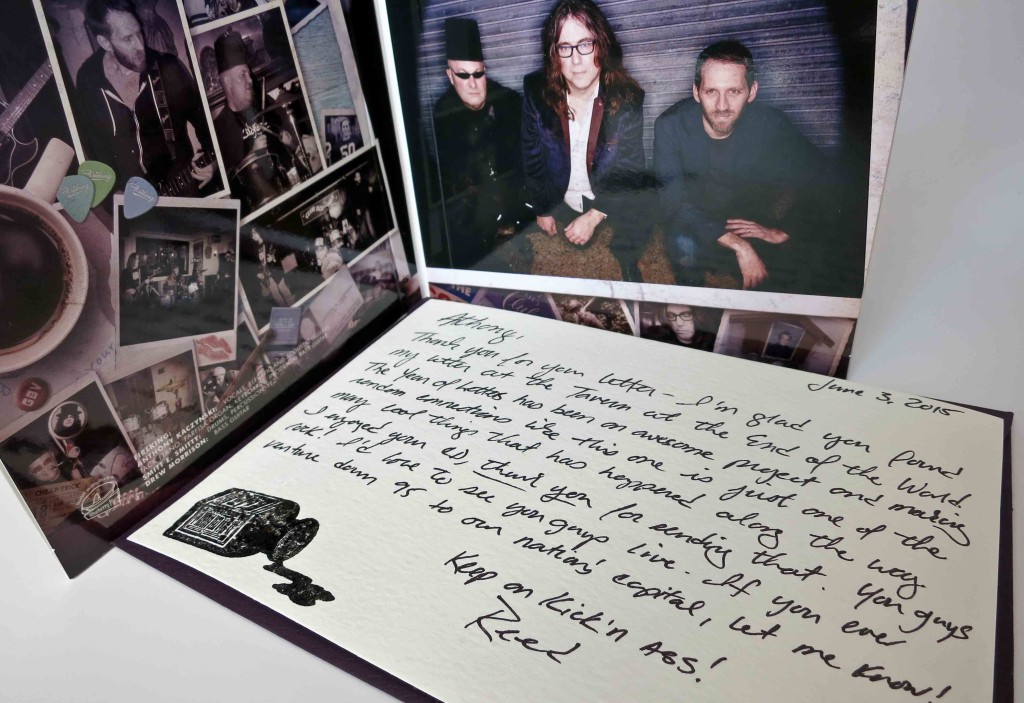 Anthony,
June 3, 2015
Thank you for your letter – I'm glad you found
my letter at the Tavern at the End of the World.
The Year of Letters has been an awesome project and making
random connections like this one is just one of the
many cool things that has happened along the way
I enjoyed your CD, thank you for sending that. You guys
rock! I'd love to see you guys live. If you ever
venture down to our nation's capital, let me know!
Keep on Kick'n Ass!
Reed
GBV
ANTHONY KACZYNSKI:
DREW MORRISON: BASS GUITAR